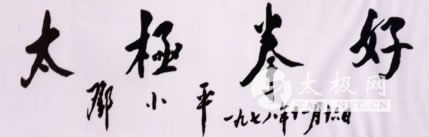 太極拳好
鄧小平 一九七八年十一月十六日
太极网